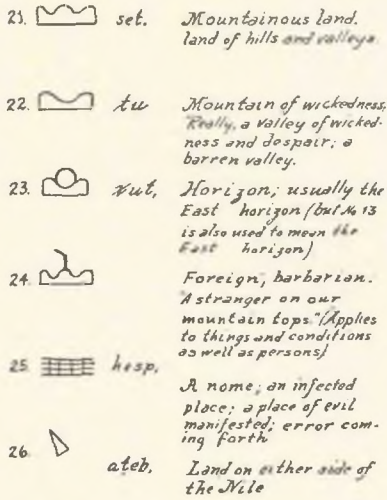 21. set. Mountainous land.
land of hills and valleys.
22. tu Mountain of wickedness,
Really, a valley of wicked-
ness and despair; a
barren valley.
23. xut, Horizon; usually the
East horizon (but No 13
is also used to mean the
East horizon)
24. Foreign, barbarian.
"A stranger on our
mountain tops." (Applies
to things and conditions
as well as persons)
25. hesp. A nome; an infected
place; a place of evil
manifested; error com-
ing forth
26. ateb. Land on either side of
the Nile